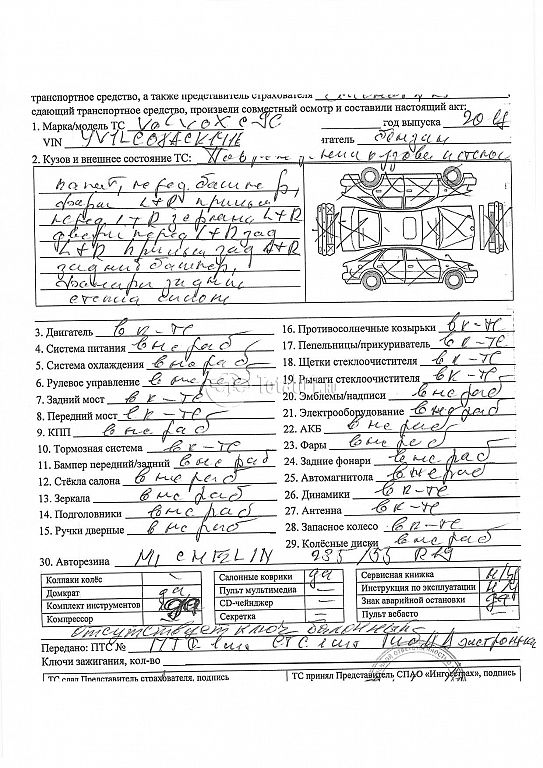 транспортное средство, а также представитель страхователя
сдающий транспортное средство, произвели совместный осмотр и составили настоящий акт:
1. Марка/модель ТС Volvo XC 90 год выпуска
VIN двигатель бензин
2. Кузов и внешнее состояние ТС:
капот, перед. бампер,
фары L+R крылья
перед L+R зеркала L+R
двери перед L+R зад
L+R крылья зад L+R
задний бампер,
фонари задние
стекла салона
3. Двигатель в к-те
4. Система питания в не раб
5. Система охлаждения в не раб
6. Рулевое управление в не раб
7. Задний мост в к-те
8. Передний мост в к-те
9. КПП в не раб
10. Тормозная система в к-те
11. Бампер передний/задний в не раб
12. Стёкла салона в не раб
13. Зеркала в не раб
14. Подголовники в не раб
15. Ручки дверные в не раб
16. Противосолнечные козырьки в к-те
17. Пепельницы/прикуриватель в к-те
18. Щетки стеклоочистителя в к-те
19. Рычаги стеклоочистителя в к-те
20. Эмблемы/надписи в не раб
21. Электрооборудование в не раб
22. АКБ в не раб
23. Фары в не раб
24. Задние фонари в не раб
25. Автомагнитола в не раб
26. Динамики в к-те
27. Антенна в к-те
28. Запасное колесо в к-те
29. Колёсные диски в не раб
30. Авторезина MICHELIN 235/55 R19
Колпаки колёс –
Домкрат да
Комплект инструментов да
Компрессор –
Салонные коврики да
Пульт мультимедиа –
CD-чейнджер –
Секретка –
Сервисная книжка
Инструкция по эксплуатации
Знак аварийной остановки да
Пульт вебасто –
отсутствует ключ балонный
Передано: ПТС № ПТС 1 шт СТС 1 шт
Ключи зажигания, кол-во
ТС сдал Представитель страхователя, подпись
ТС принял Представитель СПАО «Ингосстрах», подпись